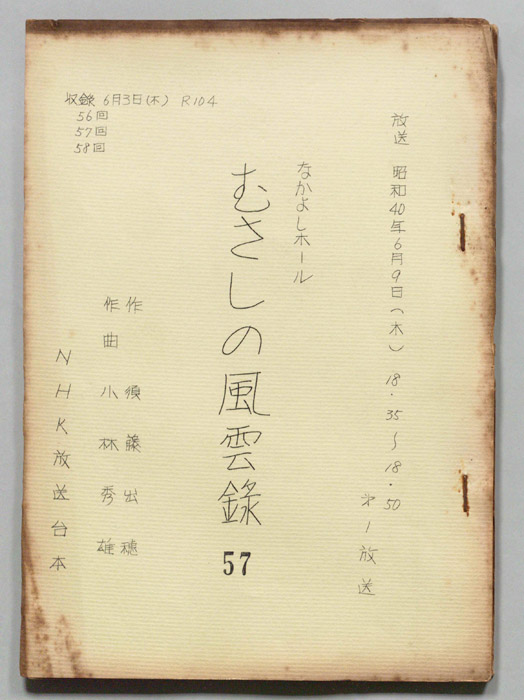 放送 昭和40年6月9日(木) 18・35〜18・50
才1放送
なかよしホール
むさしの風雲録
57
作 須藤出穂
作曲 小林秀雄
NHK放送台本
収録 6月3日(木) R104
56回
57回
58回